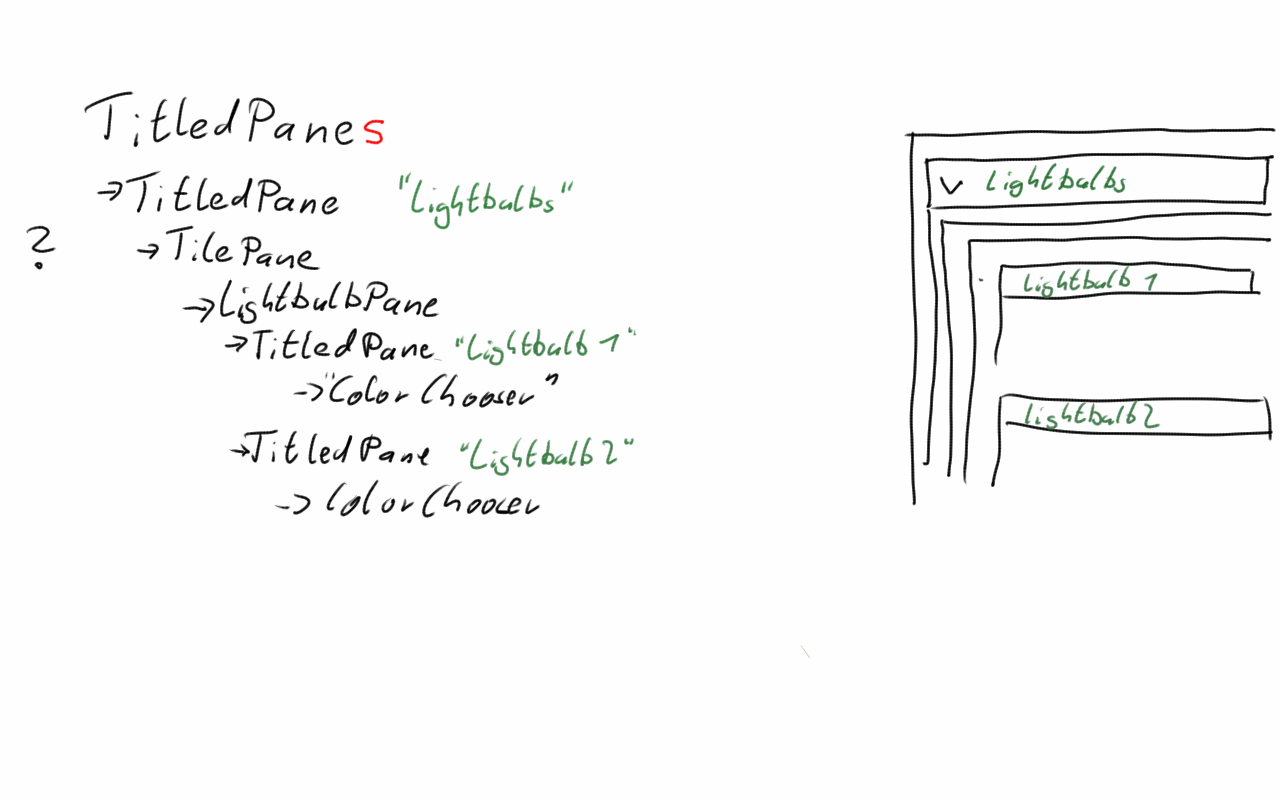 TitledPanes
→TitledPane "Lightbulbs"
?
→TilePane
→LightbulbPane
→TitledPane "Lightbulb 1"
→"ColorChooser"
→TitledPane "Lightbulb 2"
→ColorChooser
Lightbulbs
Lightbulb 1
Lightbulb 2